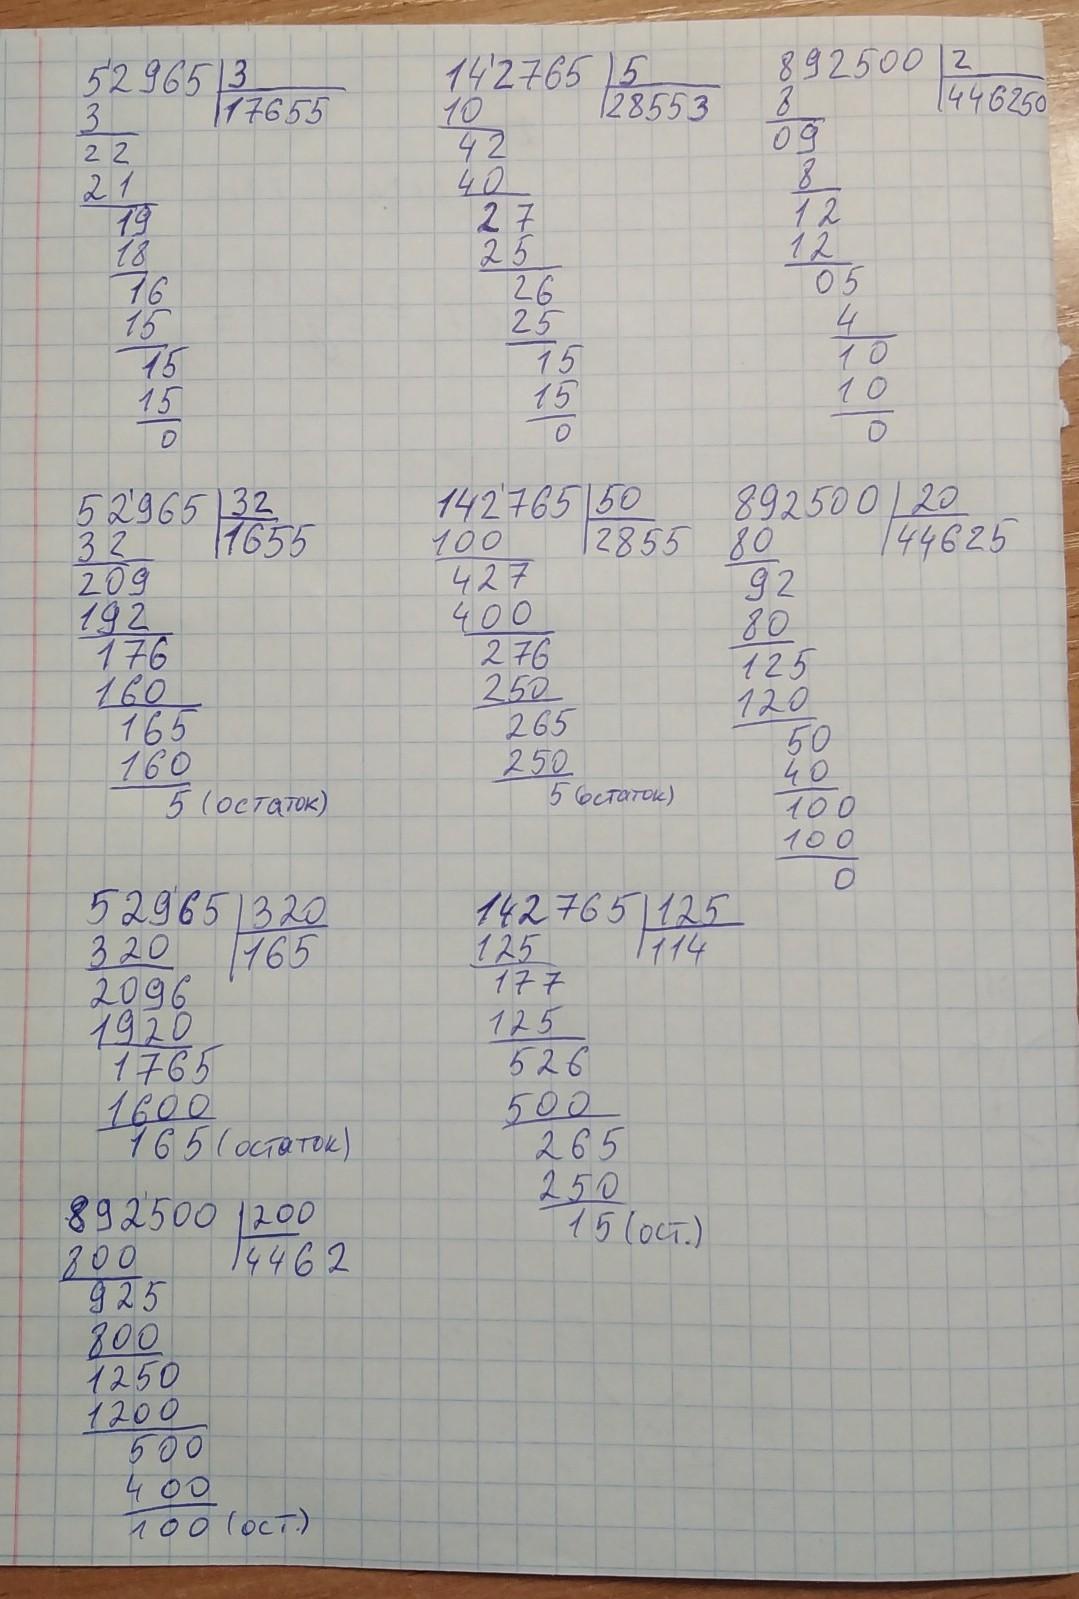 52965 3
17655
3
22
21
19
18
16
15
15
15
0
142765 5
28553
10
42
40
27
25
26
25
15
15
0
892500 2
446250
8
09
8
12
12
05
4
10
10
0
52965 32
1655
32
209
192
176
160
165
160
5 (остаток)
142765 50
2855
100
427
400
276
250
265
250
5 (остаток)
892500 20
44625
80
92
80
125
120
50
40
100
100
0
52965 320
165
320
2096
1920
1765
1600
165 (остаток)
142765 125
114
125
177
125
526
500
265
250
15 (ост.)
892500 200
4462
800
925
800
1250
1200
500
400
100 (ост.)